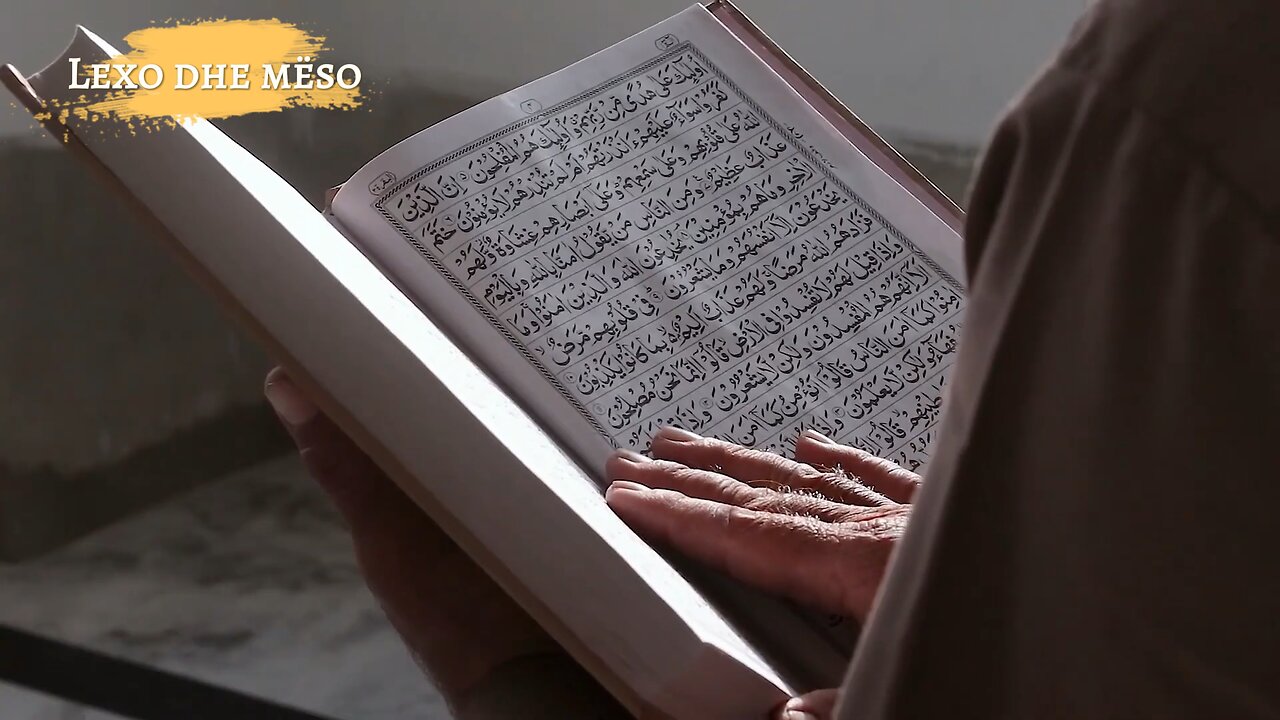 Lexo dhe mëso
أُولَٰئِكَ عَلَىٰ هُدًى مِّن رَّبِّهِمْ وَأُولَٰئِكَ هُمُ الْمُفْلِحُونَ إِنَّ الَّذِينَ
كَفَرُوا سَوَاءٌ عَلَيْهِمْ ءَأَنذَرْتَهُمْ أَمْ لَمْ تُنذِرْهُمْ لَا يُؤْمِنُونَ خَتَمَ
اللَّهُ عَلَىٰ قُلُوبِهِمْ وَعَلَىٰ سَمْعِهِمْ وَعَلَىٰ أَبْصَارِهِمْ غِشَاوَةٌ وَلَهُمْ
عَذَابٌ عَظِيمٌ وَمِنَ النَّاسِ مَن يَقُولُ آمَنَّا بِاللَّهِ وَبِالْيَوْمِ
الْآخِرِ وَمَا هُم بِمُؤْمِنِينَ يُخَادِعُونَ اللَّهَ وَالَّذِينَ آمَنُوا وَمَا
يَخْدَعُونَ إِلَّا أَنفُسَهُمْ وَمَا يَشْعُرُونَ فِي قُلُوبِهِم مَّرَضٌ
فَزَادَهُمُ اللَّهُ مَرَضًا وَلَهُمْ عَذَابٌ أَلِيمٌ بِمَا كَانُوا يَكْذِبُونَ
وَإِذَا قِيلَ لَهُمْ لَا تُفْسِدُوا فِي الْأَرْضِ قَالُوا إِنَّمَا نَحْنُ مُصْلِحُونَ
أَلَا إِنَّهُمْ هُمُ الْمُفْسِدُونَ وَلَٰكِن لَّا يَشْعُرُونَ وَإِذَا
آمِنُوا كَمَا آمَنَ النَّاسُ قَالُوا أَنُؤْمِنُ كَمَا آمَنَ
وَلَٰكِن لَّا يَعْلَمُونَ
قَالُوا